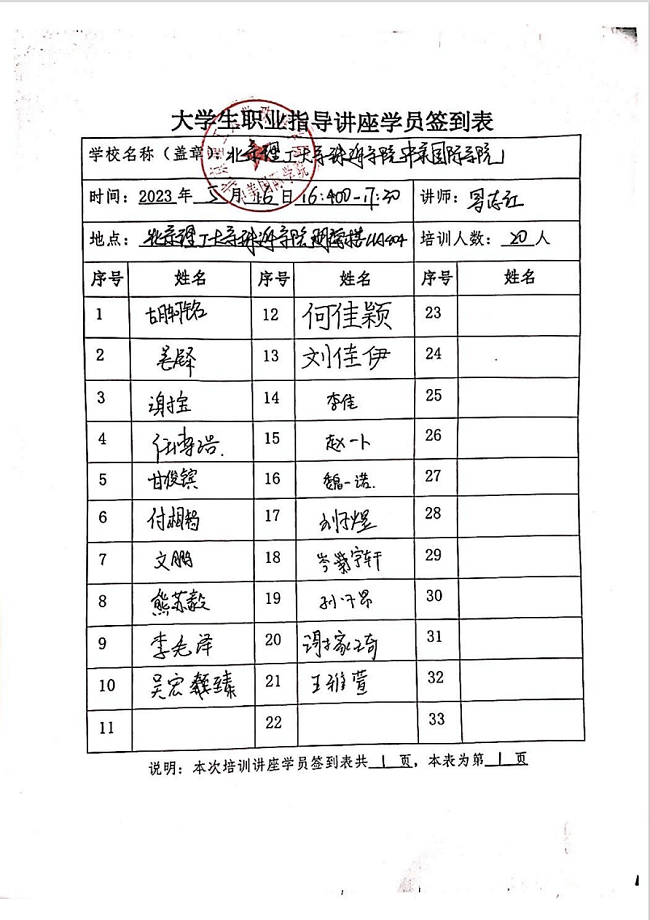 大学生职业指导讲座学员签到表
学校名称（盖章） 北京理工大学珠海学院中美国际学院
时间：2023年5月16日16:400-17:30 讲师：
地点：北京理工大学珠海学院 培训人数：20人
序号 姓名 序号 姓名 序号 姓名
1 12 何佳颖 23
2 13 刘佳伊 24
3 14 李佳 25
4 任博浩 15 赵一卜 26
5 甘俊镔 16 魏一诺 27
6 17 刘子煜 28
7 文鹏 18 29
8 熊苏毅 19 30
9 李毛泽 20 31
10 21 王雅萱 32
11 22 33
说明：本次培训讲座学员签到表共1页，本表为第1页